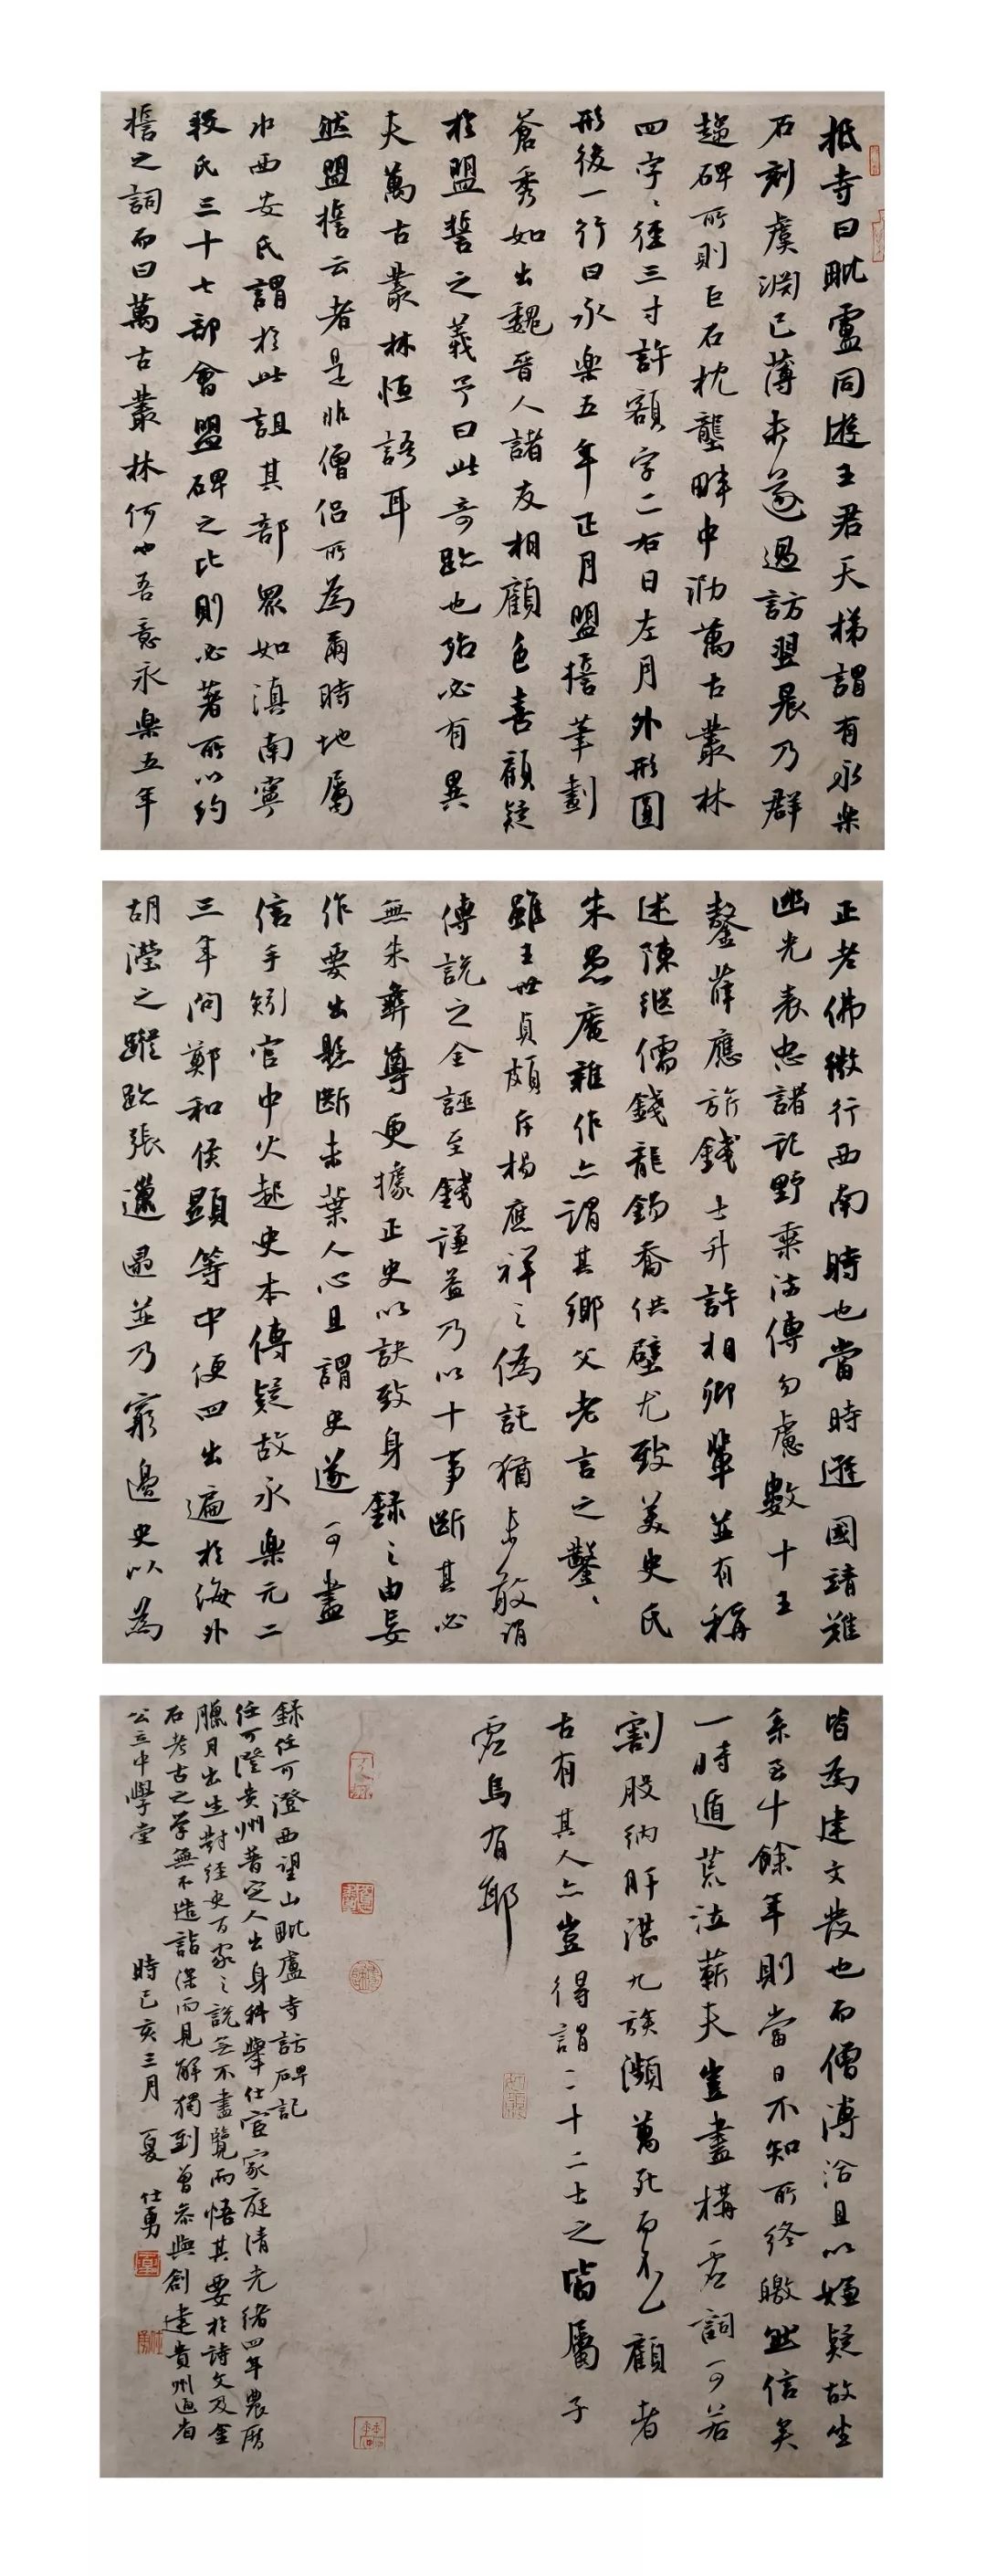 抵寺曰毗盧同遊王君天梯謂有永樂
石刻虞淵已薄未遂過訪翌晨乃群
趨碑所則巨石枕壟畔中泐萬古叢林
四字〻徑三寸許額字二右日左月外形圓
形後一行曰永樂五年正月盟㩛筆劃
蒼秀如出魏晉人諸友相顧色喜顧疑
於盟誓之義予曰此奇跡也殆必有異
夫萬古叢林恒語耳
然盟㩛云者是非僧侶所為爾時地屬
水西安氏謂於此詛其部眾如滇南寧
段氏三十七部會盟碑之比則必著所以約
㩛之詞而曰萬古叢林何也吾意永樂五年
正老佛微行西南時也當時遜國靖難
幽光表忠諸記野乘流傳勿慮數十王
鏊薛應旂錢士升許相卿輩並有稱
述陳繼儒錢龍錫喬供璧尤致美史氏
朱愚庵雜作亦謂其鄉父老言之鑿〻
雖王世貞頗斥楊應祥〻偽託猶未敢謂
傳說之全誣至錢謙益乃以十事斷其必
無朱彝尊更據正史以訣致身錄〻由妄
作要出懸斷未葉人心且謂史遂可盡
信乎矧宮中火起史本傳疑故永樂元二
三年間鄭和侯顯等中使四出遍於海外
胡濙之蹤跡張邋遢並乃窮邊史以為
皆為建文發也而僧溥洽且以嫌疑故坐
系至十餘年則當日不知所終曒然信矣
一時遁荒泣蘄夫豈盡構虛詞可若
割股納肝湛九族瀕萬死而不顧者
古有其人亦豈得謂二十二士之皆屬子
虛烏有耶
錄任可澄西望山毗盧寺訪碑記
任可澄貴州普定人出身科舉仕宦家庭清光緒四年農曆
臘月出生對經史百家之說無不盡覽而悟其要於詩文及金
石考古之學無不造詣深而見解獨到曾參與創建貴州通省
公立中學堂
時己亥三月 夏仕勇